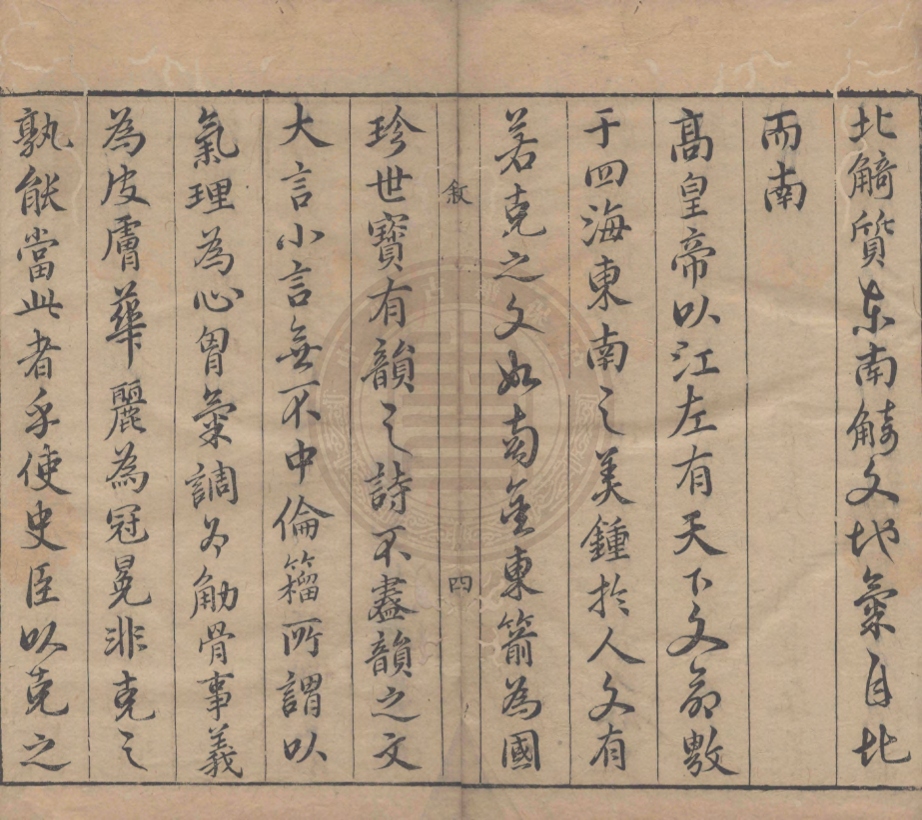 北觭質東南觭文地氣自北
而南
高皇帝以江左有天下文命敷
于四海東南之美鍾於人文有
若克之文如南金東箭為國
敘
四
珍世寶有韻之詩不盡韻之文
大言小言無不中倫籀所謂以
氣理為心胷氣調為觔骨事義
為皮膚華麗為冠冕非克之
孰能當此者乎使史臣以克之